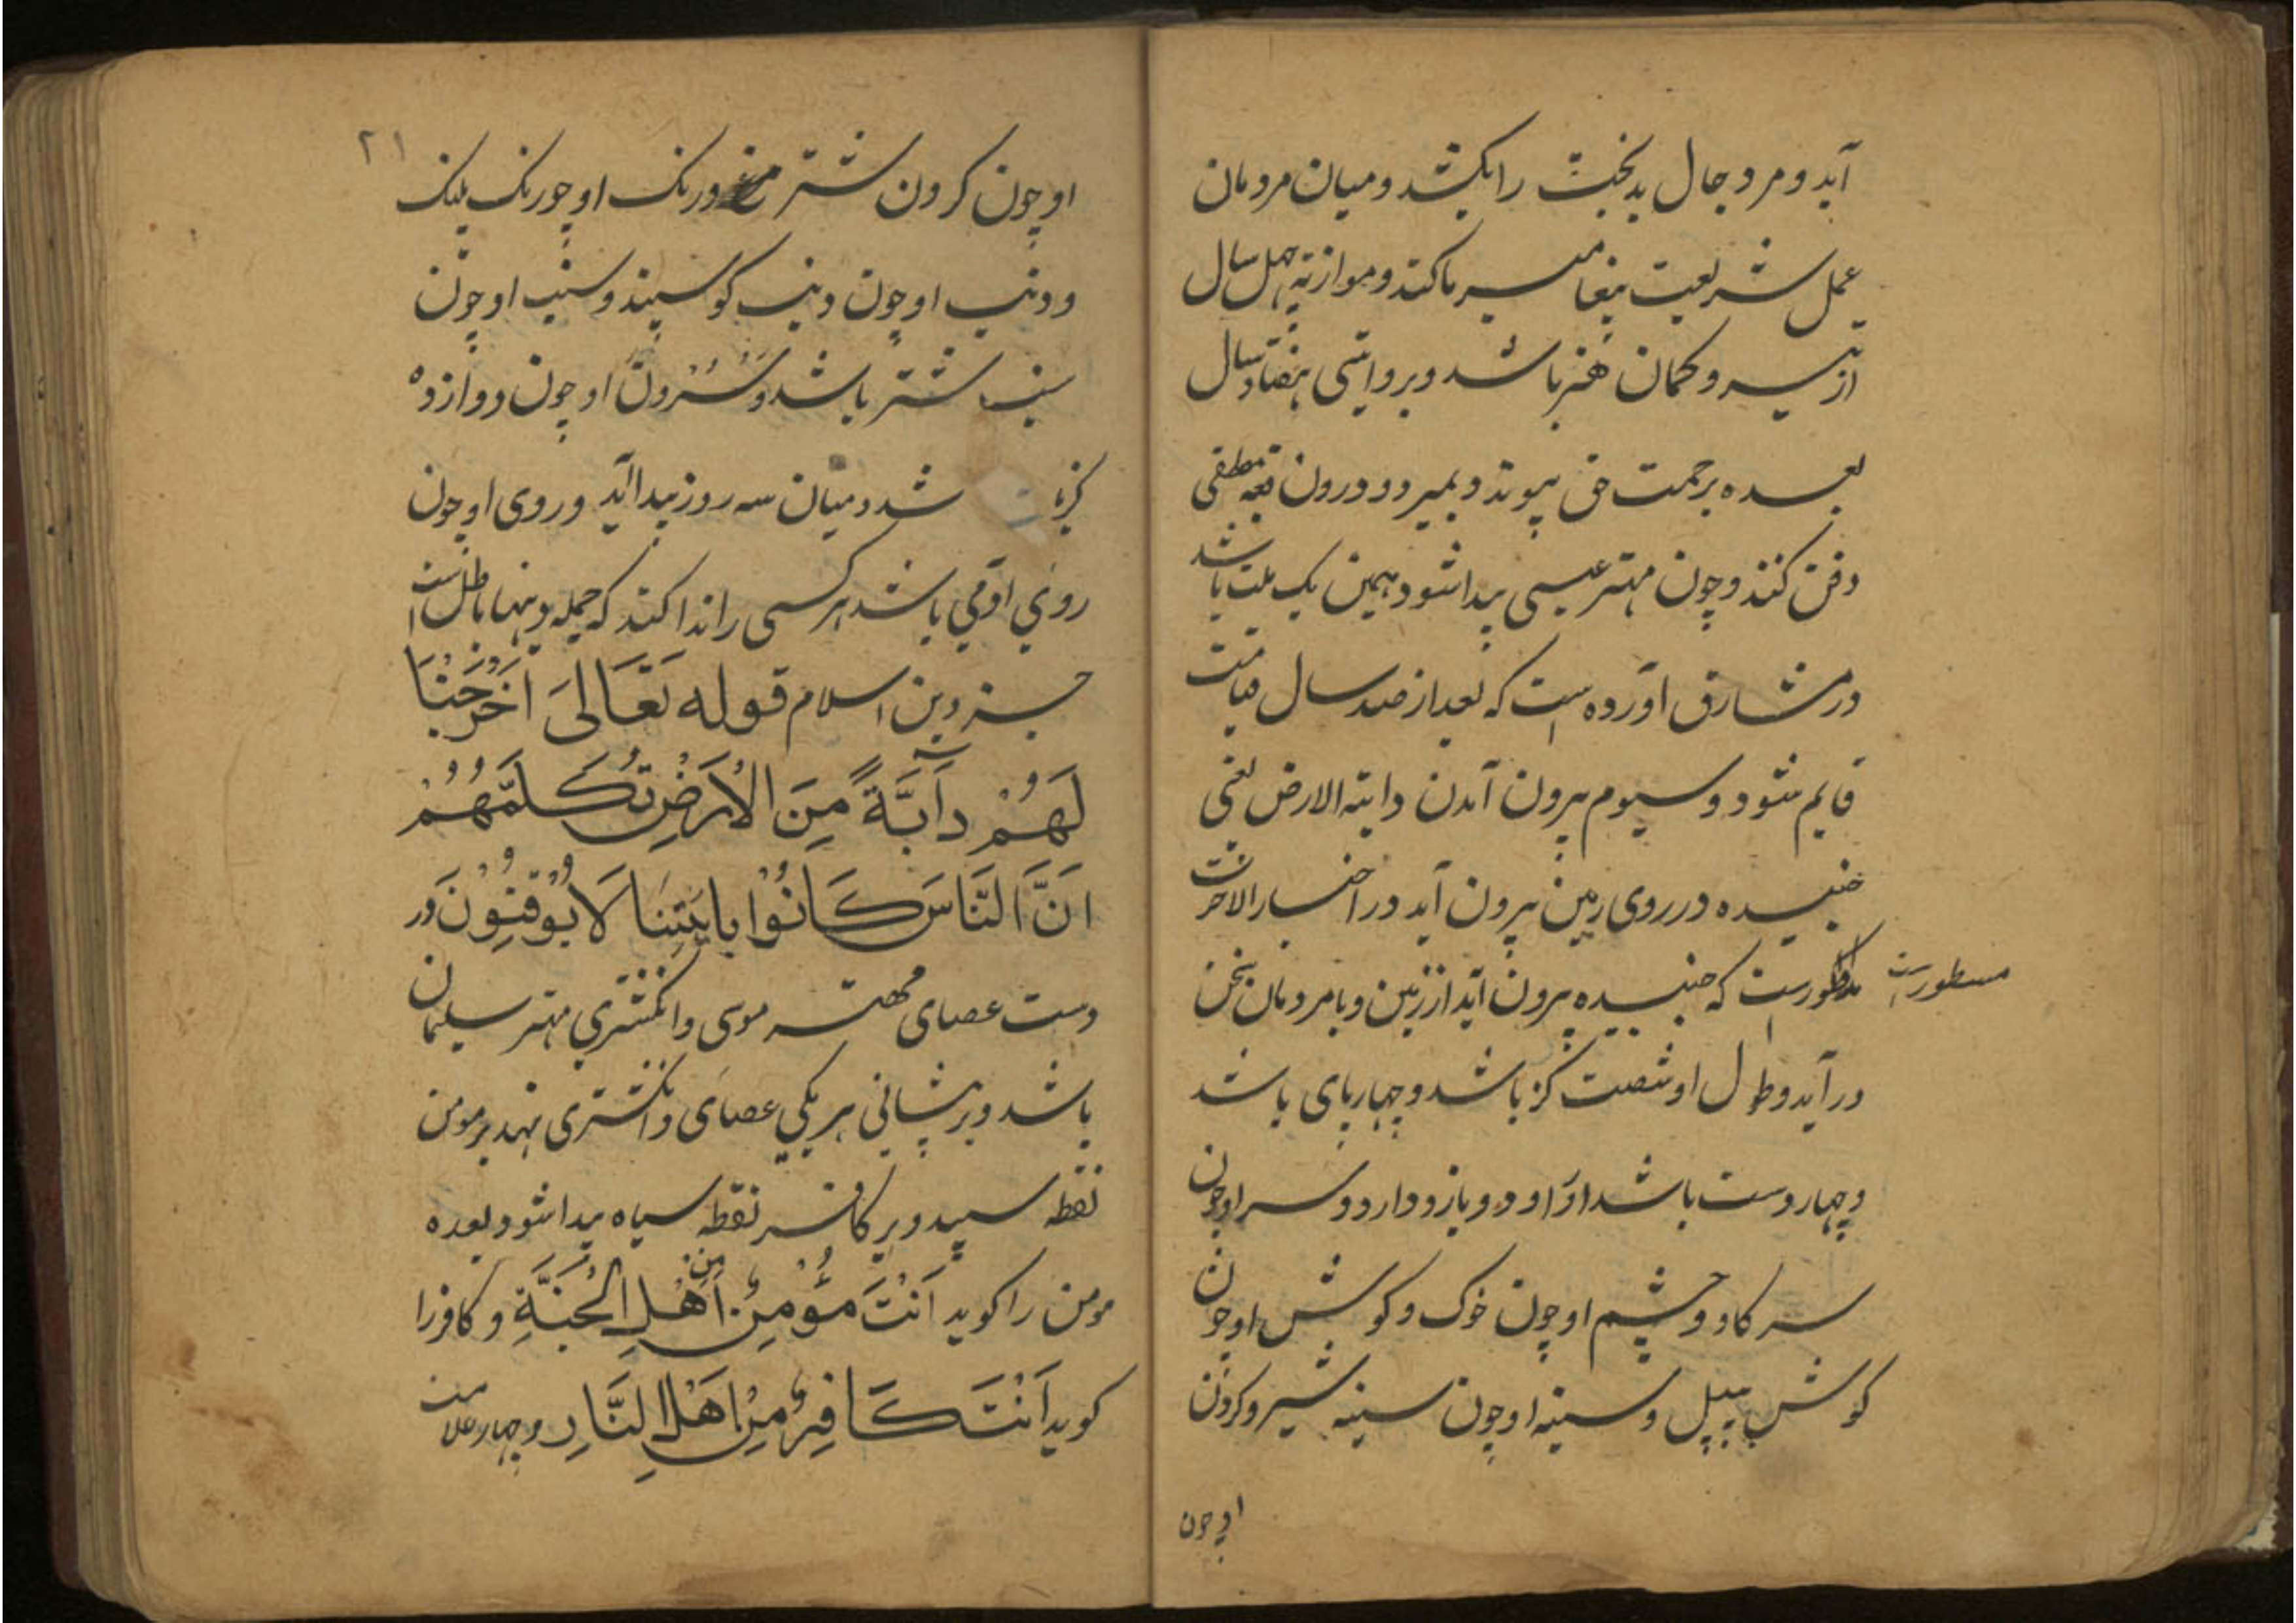 آید و مر دجال بدبخت را بکشد و میان مردمان
عمل شریعت پیغامبر ما کند و موازنه چهل سال
از تیر و کمان هنر باشد و بروایتی هفتاد سال
بعده برحمت حق پیوندد و بمیرد و درون قبه مصطفی
دفن کنند و چون مهتر عیسی پیدا شود همین یک ملت باشد
در مشارق آورده است که بعد از صد سال قیامت
قایم شود و سیوم بیرون آمدن دابته الارض یعنی
جنبیده در روی زمین بیرون آید در اخبار الاخرت
مسطورست که جنبیده بیرون آید از زمین و با مردمان سخن
در آید و طول او شصت گز باشد و چهارپای باشد
و چهار دست باشد او را و دو بازو دارد و سر او چون
سر گاو و چشم او چون خوک و گوش او چون
گوش پیل و سینه او چون سینه شیر و گردن
او چون
۲۱
او چون گردن شتر مرغ و رنگ او چو رنگ پلنگ
و دنب او چون دنب گوسپند و سنب او چون
سنب شتر باشد و سُرون او چون دوازده
گز باشد و میان سه روز پیدا آید و روی او چون
روی آدمی باشد هر کسی را ندا کند که جمله دینها باطل است
جز دین اسلام قوله تَعَالیَ اَخْرَجْنَا
لَهُمْ دَآبَّةً مِنَ الْاَرْضِ تُكَلِّمَهُمْ
اَنَّ النَّاسَ كَانُوْا بِايٰتِنَا لَا يُوْقِنُوْنَ در
دست عصای مهتر موسی و انگشتری مهتر سلیمان
باشد و بر پیشانی هر یکی عصای و انگشتری نهد بر مومن
نقطه سپید و بر کافر نقطه سیاه پیدا شود بعده
مومن را کوید اَنْتَ مُؤْمِنٌ مِنْ اَهْلِ الْجَنَّةِ و کافر را
کوید اَنْتَ كَافِرٌ مِنْ اَهْلِ النَّارِ و چهار علامت